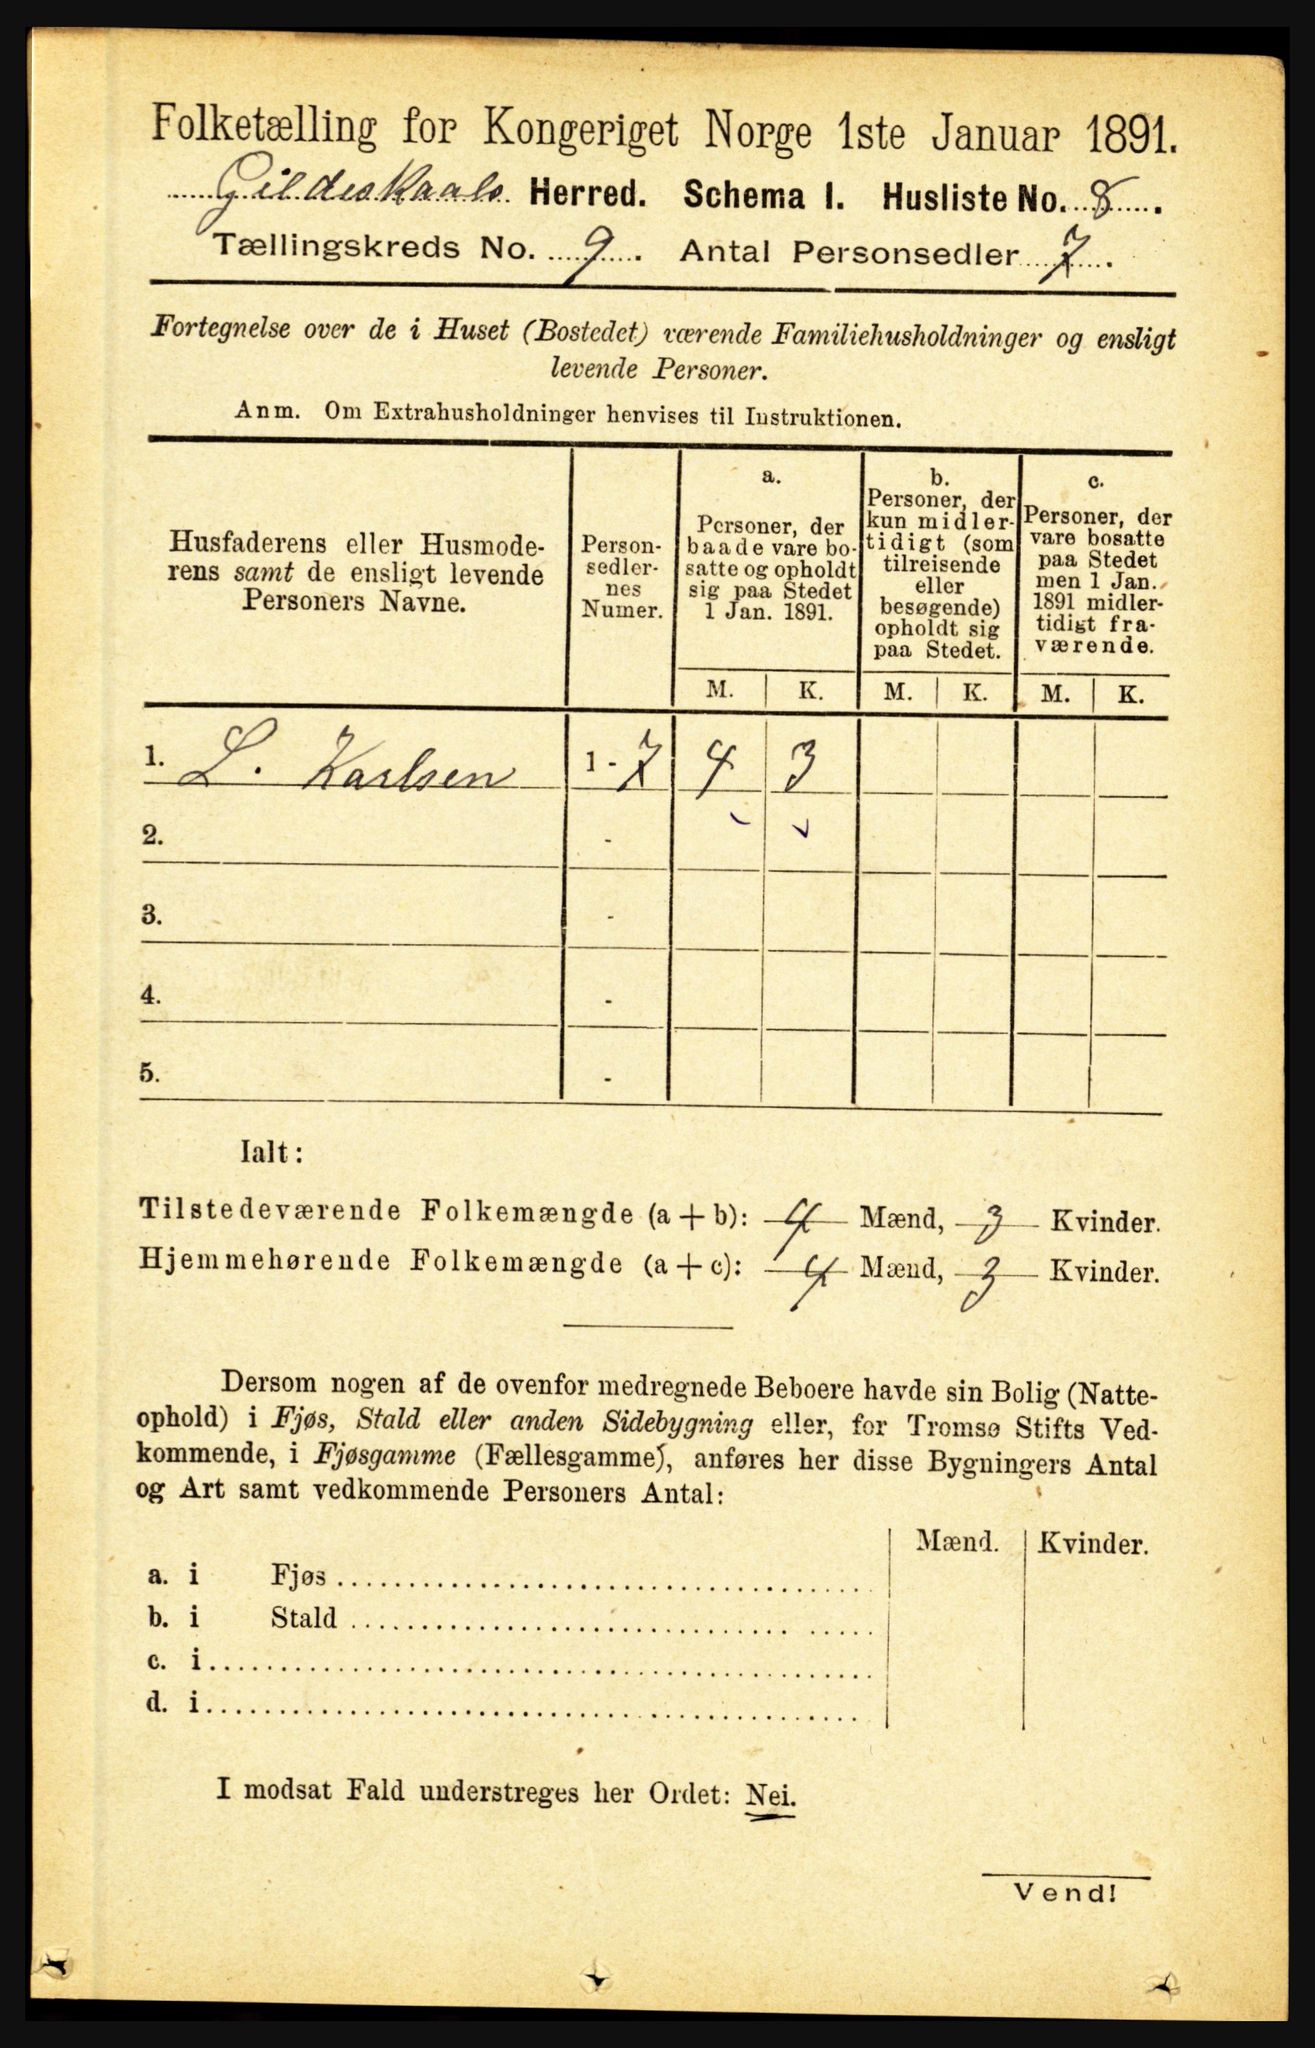 Folketælling for Kongeriget Norge 1ste Januar 1891.
Gildeskaals Herred. Schema I. Husliste No. 8.
Tællingskreds No. 9. Antal Personsedler 7.
Fortegnelse over de i Huset (Bostedet) værende Familiehusholdninger og ensligt
levende Personer.
Anm. Om Extrahusholdninger henvises til Instruktionen.
Husfaderens eller Husmode-
rens samt de ensligt levende
Personers Navne.
Person-
sedler-
nes
Numer.
a.
Personer, der
baade vare bo-
satte og opholdt
sig paa Stedet
1 Jan. 1891.
b.
Personer, der
kun midler-
tidigt (som
tilreisende
eller
besøgende)
opholdt sig
paa Stedet.
c.
Personer, der
vare bosatte
paa Stedet
men 1 Jan.
1891 midler-
tidigt fra-
værende.
M. K. M. K. M. K.
1. L. Karlsen 1 - 7 4 3
2. -
3. -
4. -
5. -
Ialt:
Tilstedeværende Folkemængde (a + b): 4 Mænd, 3 Kvinder.
Hjemmehørende Folkemængde (a + c): 4 Mænd, 3 Kvinder.
Dersom nogen af de ovenfor medregnede Beboere havde sin Bolig (Natte-
ophold) i Fjøs, Stald eller anden Sidebygning eller, for Tromsø Stifts Ved-
kommende, i Fjøsgamme (Fællesgamme), anføres her disse Bygningers Antal
og Art samt vedkommende Personers Antal:
Mænd. Kvinder.
a. i Fjøs
b. i Stald
c. i
d. i
I modsat Fald understreges her Ordet: Nei.
Vend!